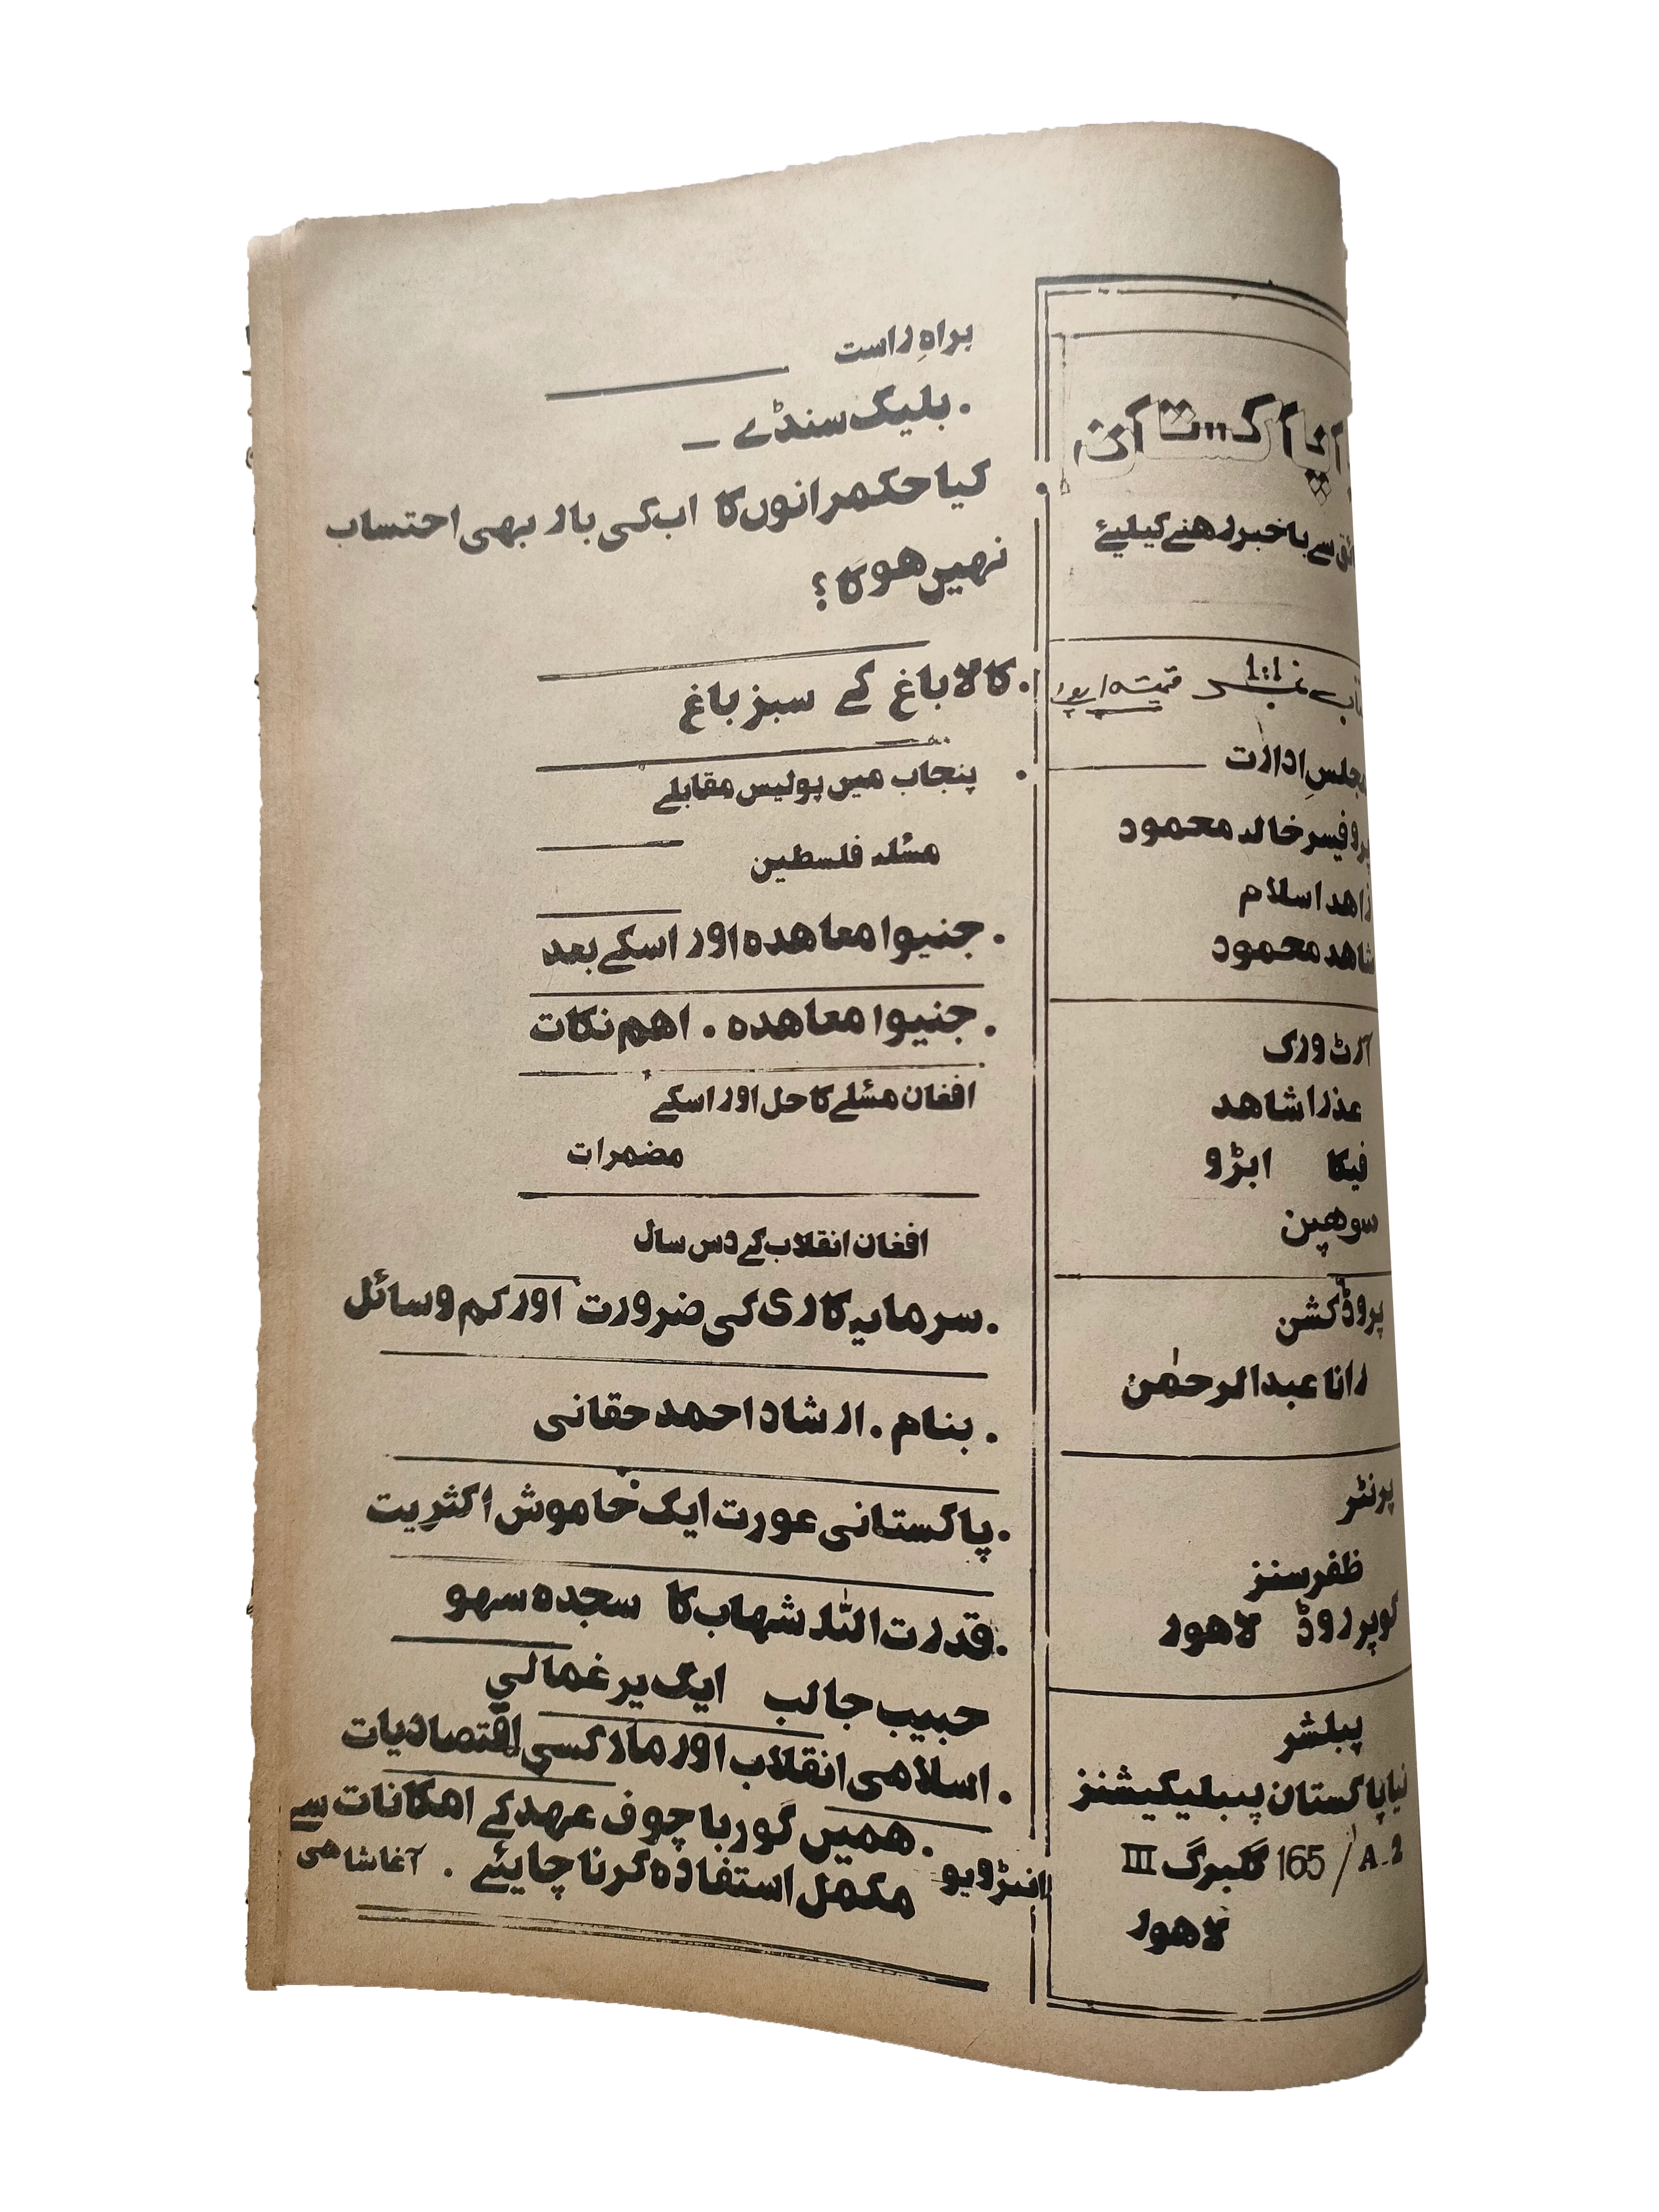 پاکستان
سے باخبر رهنے کیلیۓ
نمبر 1:1 قیمت
مجلسِ ادارت
پروفیسر خالد محمود
زاهد اسلام
شاهد محمود
آرٹ ورک
عذرا شاهد
فیکا ابڑو
سوهپن
پروڈکشن
رانا عبدالرحمٰن
پرنٹر
ظفر سنز
کوپر روڈ لاهور
پبلشر
نیا پاکستان پبلیکیشنز
2-A / 165 گلبرگ III
لاهور
براهِ راست
. بلیک سنڈے _
کیا حکمرانوں کا اب کی بار بهی احتساب
نهیں هو گا ؟
. کالا باغ کے سبز باغ
. پنجاب میں پولیس مقابلے
مسٔله فلسطین
. جنیوا معاهده اور اسکے بعد
. جنیوا معاهده . اهم نکات
افغان مسٔلے کا حل اور اسکے
مضمرات
افغان انقلاب کے دس سال
. سرمایه کاری کی ضرورت اور کم وسائل
. بنام . ارشاد احمد حقانی
. پاکستانی عورت ایک خاموش اکثریت
. قدرت اللّٰه شهاب کا سجده سهو
حبیب جالب ایک یرغمالی
. اسلامی انقلاب اور مارکسی اقتصادیات
. همیں گورباچوف عهد کے امکانات سے
انٹرویو مکمل استفاده کرنا چایئے . آغا شاهی